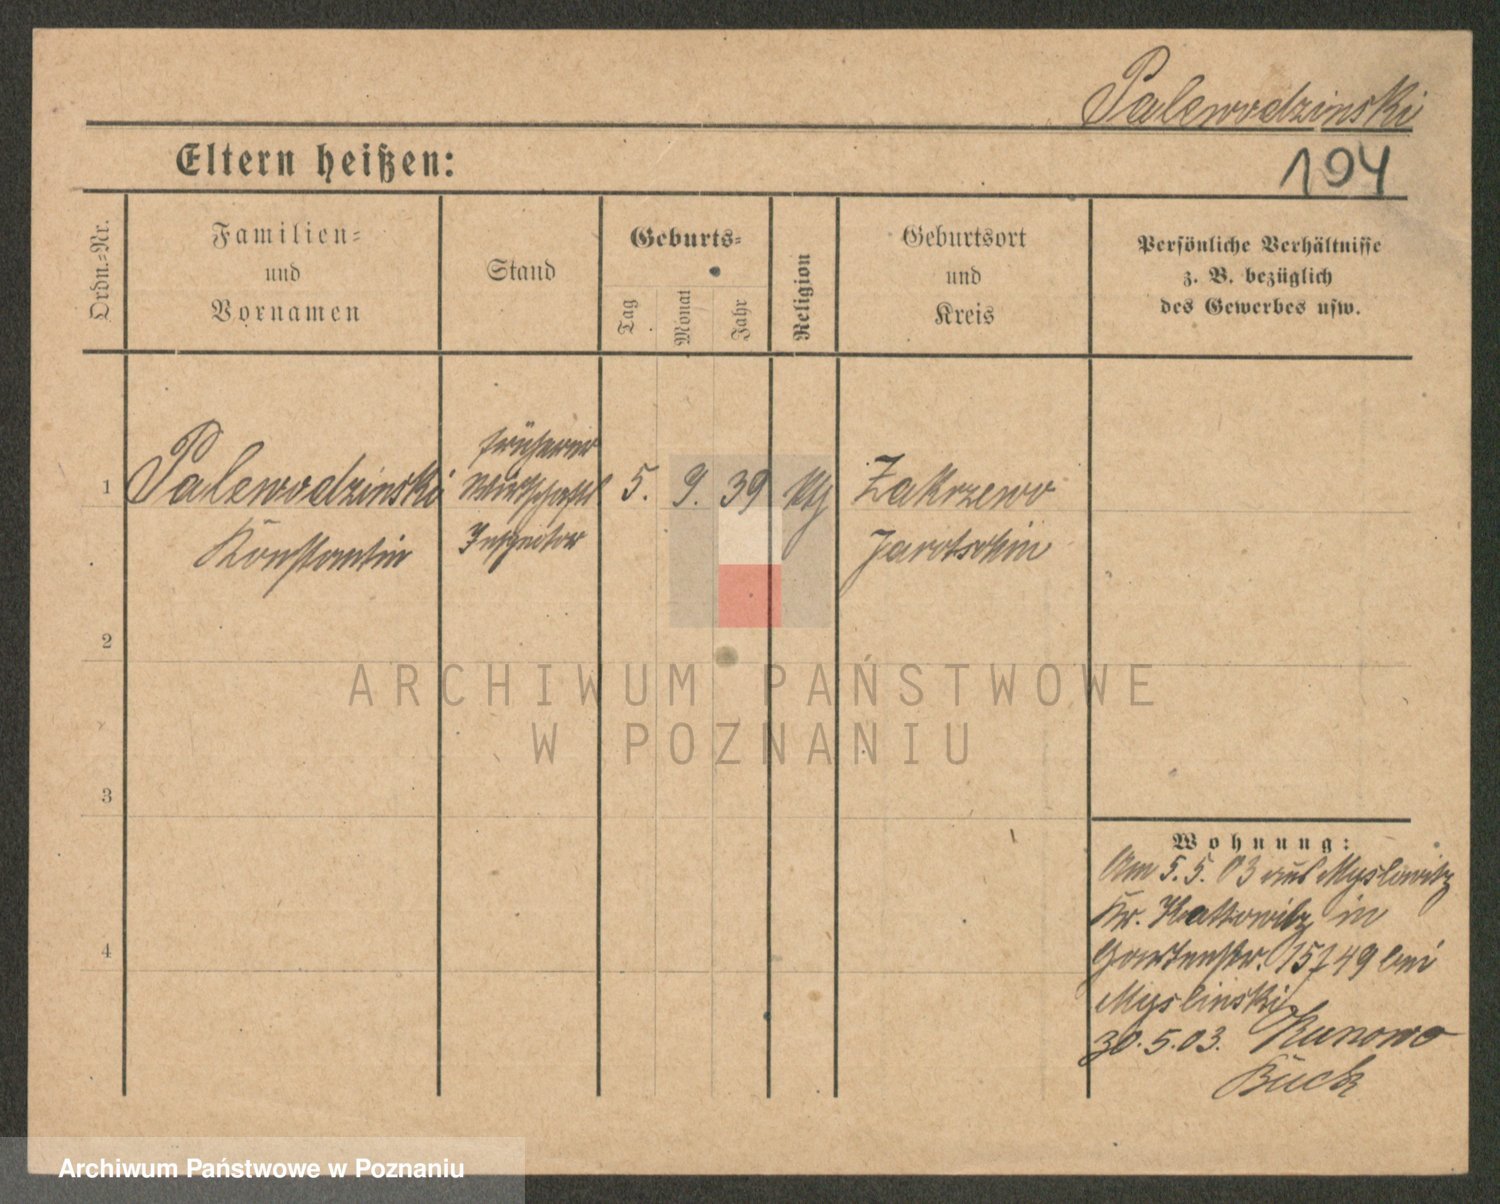 Palewodzinski
Eltern heißen:
194
Ordn.-Nr.
Familien-
und
Vornamen
Stand
Geburts-
Tag
Monat
Jahr
Religion
Geburtsort
und
Kreis
Persönliche Verhältnisse
z. B. bezüglich
des Gewerbes usw.
1
Palewodzinski
Konstantin
früherer
Wirtschafts
Inspector
5. 9. 39
Zakrzewo
Jarotschin
2
ARCHIWUM PAŃSTWOWE
W POZNANIU
3
4
Wohnung:
Am 5.5.03 aus Myslowitz
Kr. Kattowitz in
Gartenstr. 15 49 bei
Myslinski
30.5.03. Kunowo
Buck
Archiwum Państwowe w Poznaniu